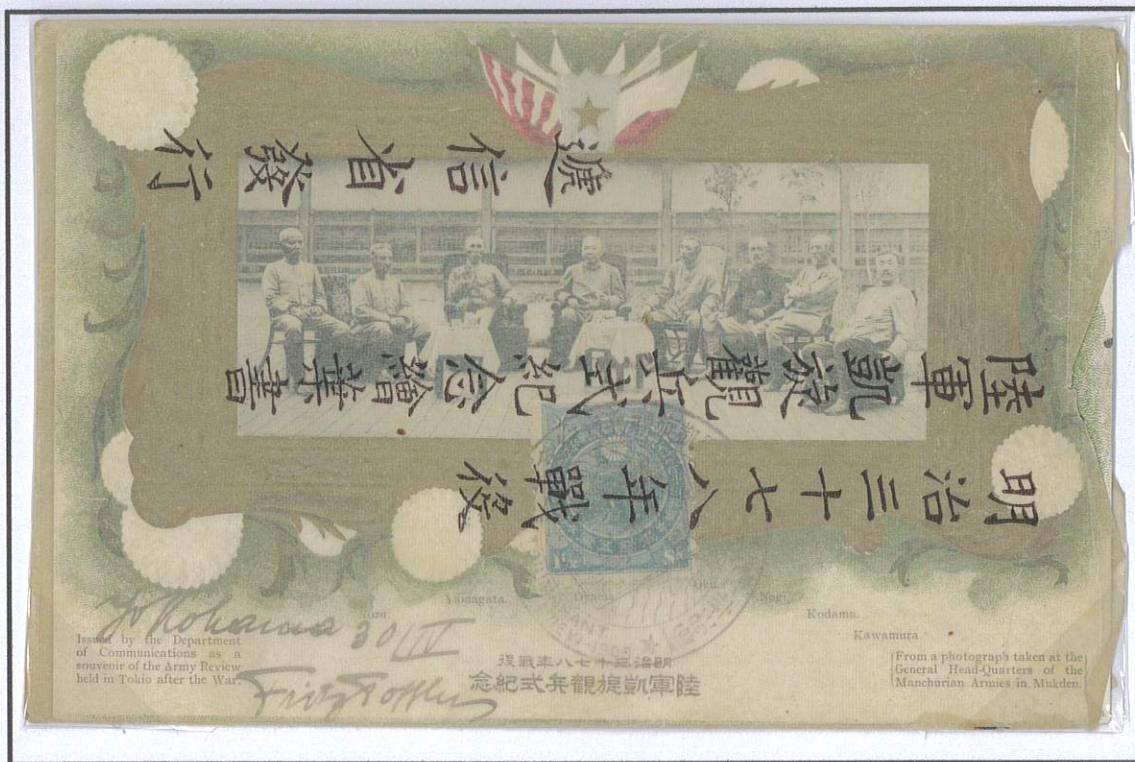 明治三十七八年戰役
陸軍凱旋觀兵式紀念繪葉書
遞信省發行
Yamagata.
Oyama.
Oku.
Nogi.
Kodama.
Kawamura.
Yokohama 30/IV
Issued by the Department
of Communications as a
souvenir of the Army Review
held in Tokio after the War.
Fritz
明治三十七八年戰役
陸軍凱旋觀兵式紀念
From a photograph taken at the
General Head-Quarters of the
Manchurian Armies in Mukden.